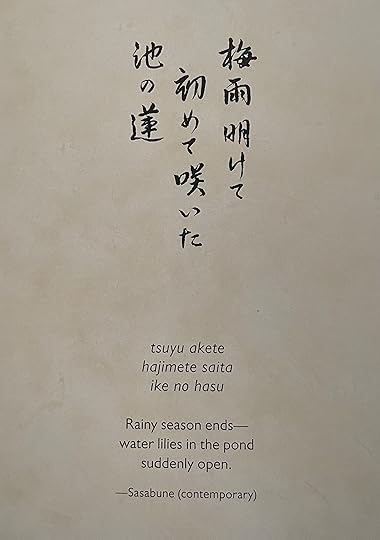 梅雨明けて
初めて咲いた
池の蓮
tsuyu akete
hajimete saita
ike no hasu
Rainy season ends—
water lilies in the pond
suddenly open.
—Sasabune (contemporary)